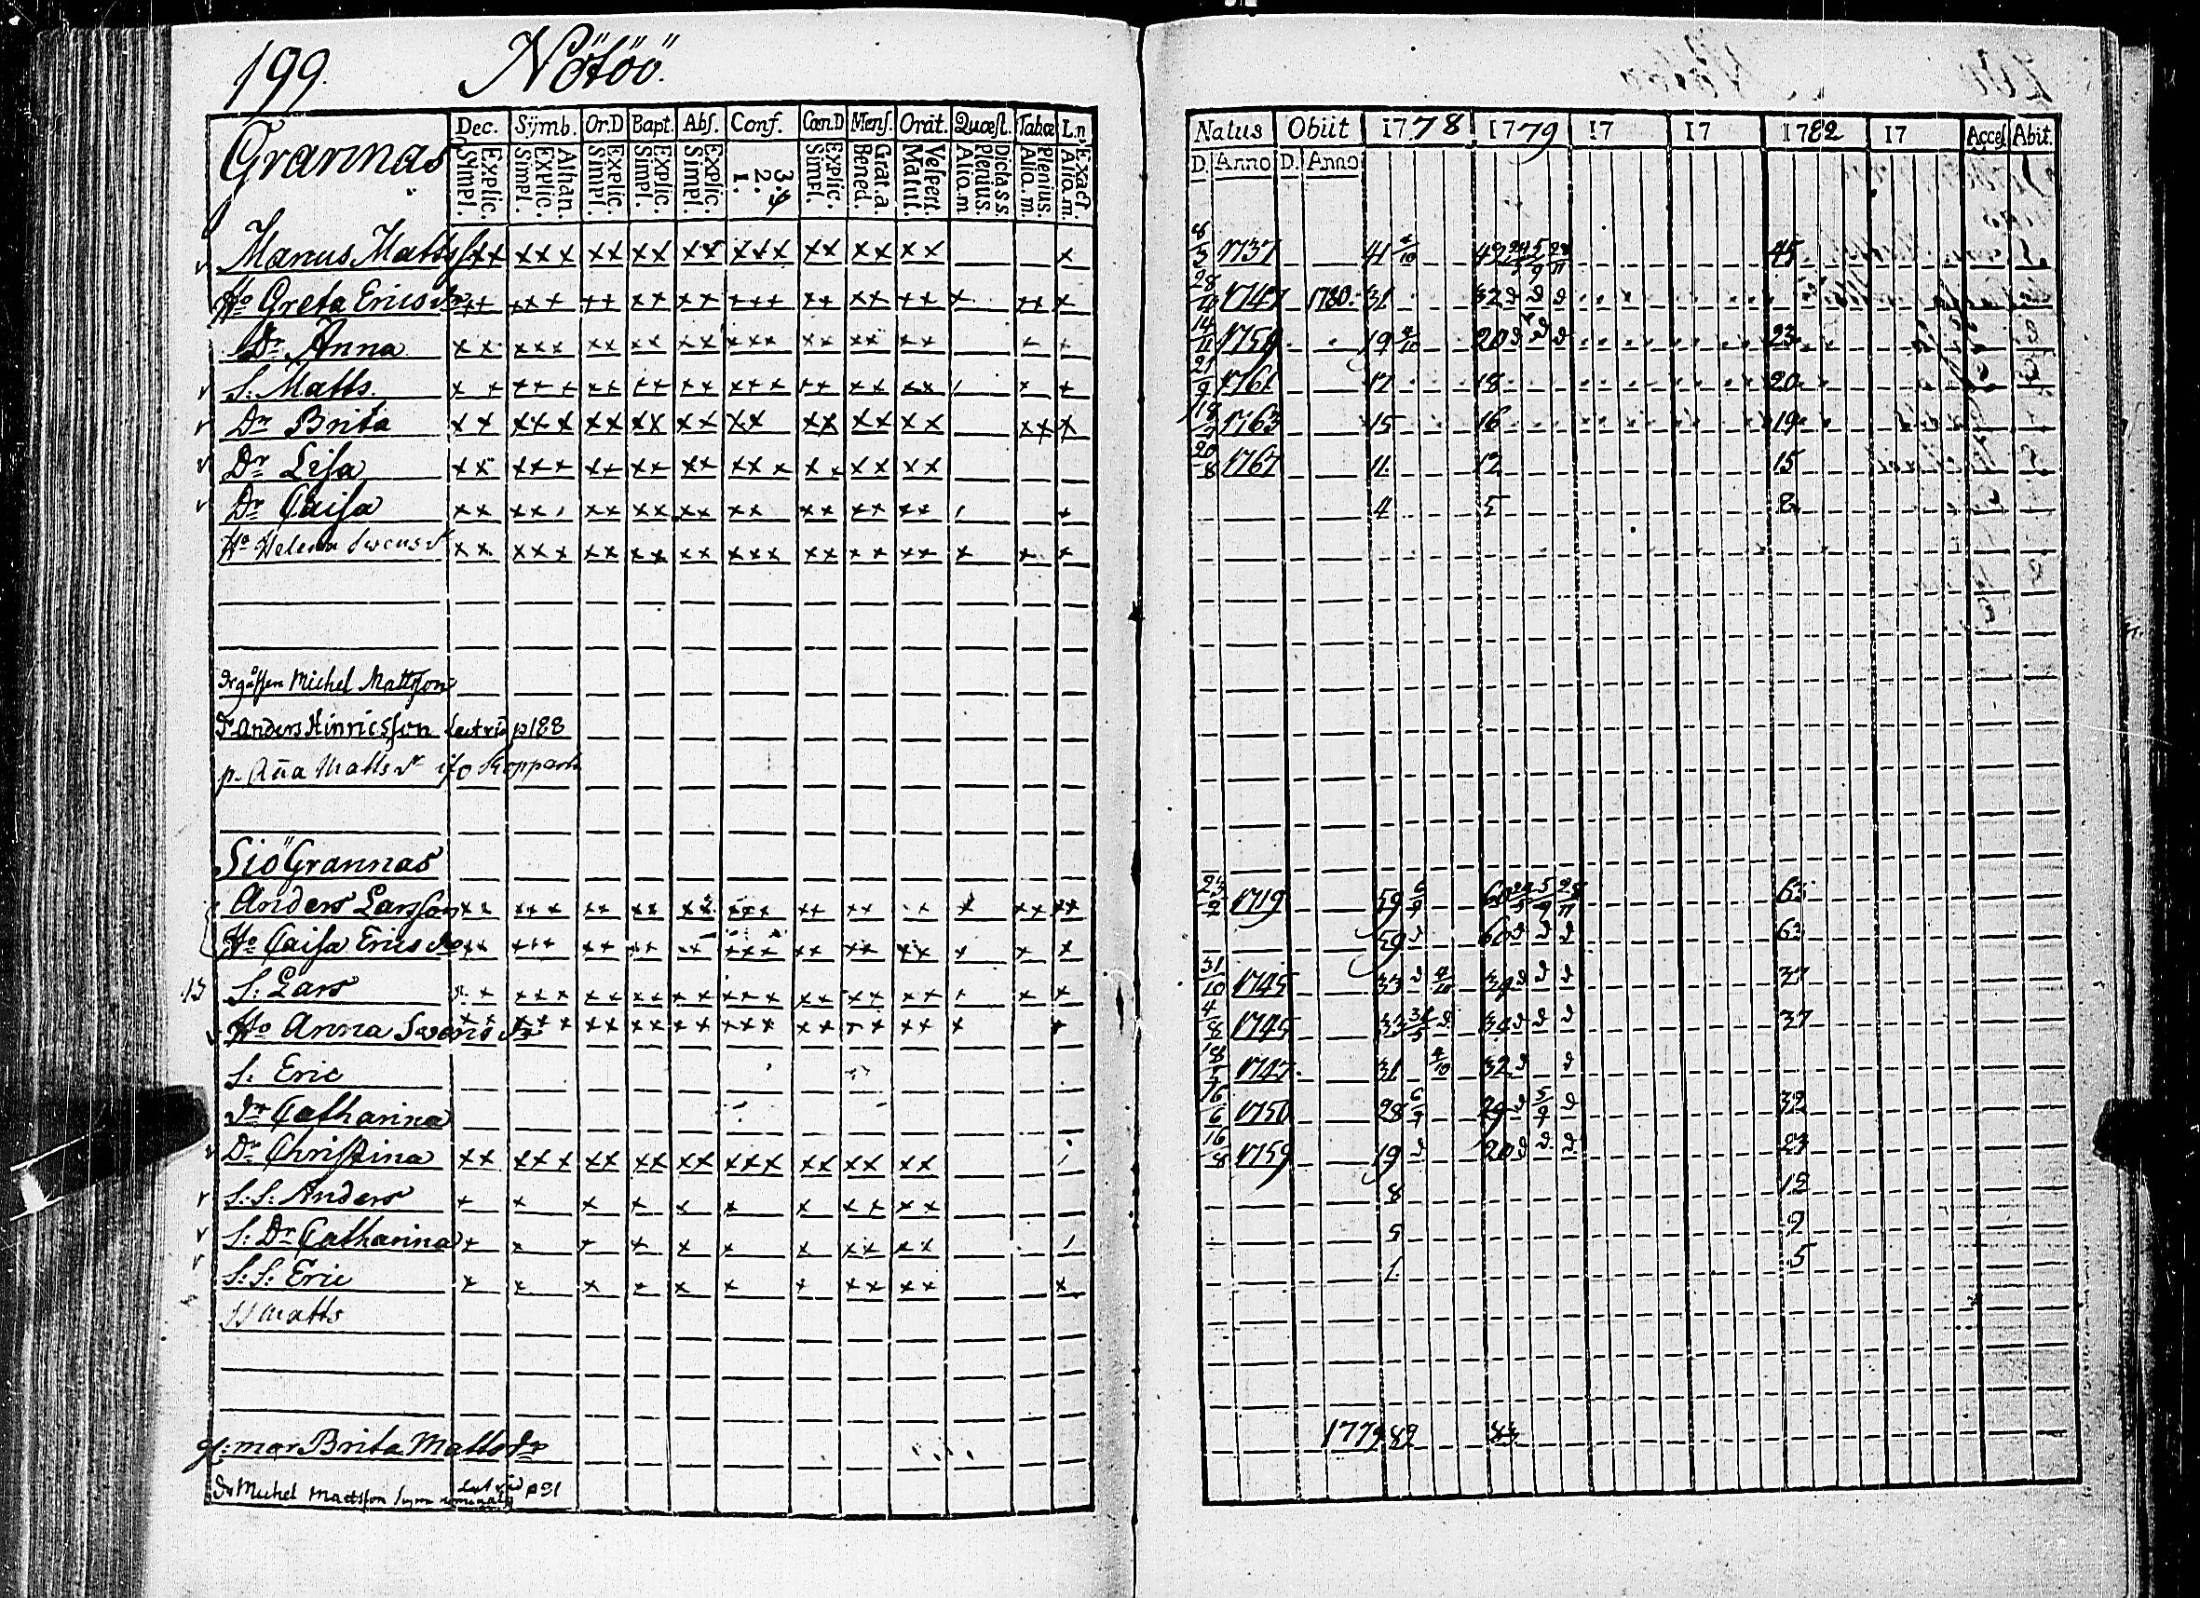 199. Nötöö.
Dec. Sÿmb. Or.D Bapt. Abs. Conf. Cœn.D Mens. Orat. Quæst. Tabæ L.n.
Grannas
Explic. Simpl. Athan. Explic. Simpl. Explic. Simpl. Explic. Simpl. Explic. Simpl. 3.4 2. 1. Explic. Simpl. Grat.a. Bened. Vespert. Matut. Dicta s s. Plenius. Alio.m Plenius. Alio.m. Exact. Alio.m.
Manus Mattss xx xxx xx xx xx xxx xx xx xx x
Ho Greta Ericsdr xx xxx xx xx xx xxx xx xx xx x xx x
Dr Anna xx xxx xx xx xx xxx xx xx xx x x
S: Matts xx xxx xx xx xx xxx xx xx xx x x
Dr Brita xx xxx xx xx xx xx xx xx xx xx x
Dr Lisa xx xxx xx xx xx xxx xx xx xx
Dr Caisa xx xx xx xx xx xx xx xx xx x
Ho Helena Swensdr xx xxx xx xx xx xxx xx xx xx x x x
Michel Mattsson
Dr Anders Hinricsson p 188
p. Aña Mattsdr ifo Kopparh
Siö Grannas
Anders Larsson xx xxx xx xx xx xxx xx xx xx x xx xx
Ho Caisa Ericsdr xx xxx xx xx xx xxx xx xx xx x x x
S: Lars x xxx xx xx xx xxx xx xx xx x x x
Ho Anna Swensdr xx xxx xx xx xx xxx xx xx xx x x
S: Eric
Dr Catharina
Dr Christina xx xxx xx xx xx xxx xx xx xx
S: S: Anders x x x x x x x xx xx
S: Dr Catharina x x x x x x x xx xx
S: S: Eric x x x x x x x xx xx x
SS Matts
mor Brita Mattsdr
Dr Michel Mattsson
Natus Obiit 1778 1779 17 17 1782 17 Acces. Abit.
D. Anno D. Anno
1737 41 4/10 42 24/5 5/9 28/11 45
28 1747 1780 31 32 d d d
14/11 1758 19 4/10 20 d d d 23
21/9 1761 17 18 20
18 1763 15 16 19
20/8 1767 11 12 15
4 5 8
23/2 1719 59 6/9 60 24/5 5/9 28/11 63
59 d 60 d d d 63
31/10 1745 33 d 4/10 34 d d d 37
4/8 1745 33 31/5 d 34 d d d 37
1747 31 4/10 32 d d
16/6 1750 28 6/9 29 d 5/9 d 32
16/8 1759 19 d 20 d d d 23
8 12
5 9
1 5
1779 82 83